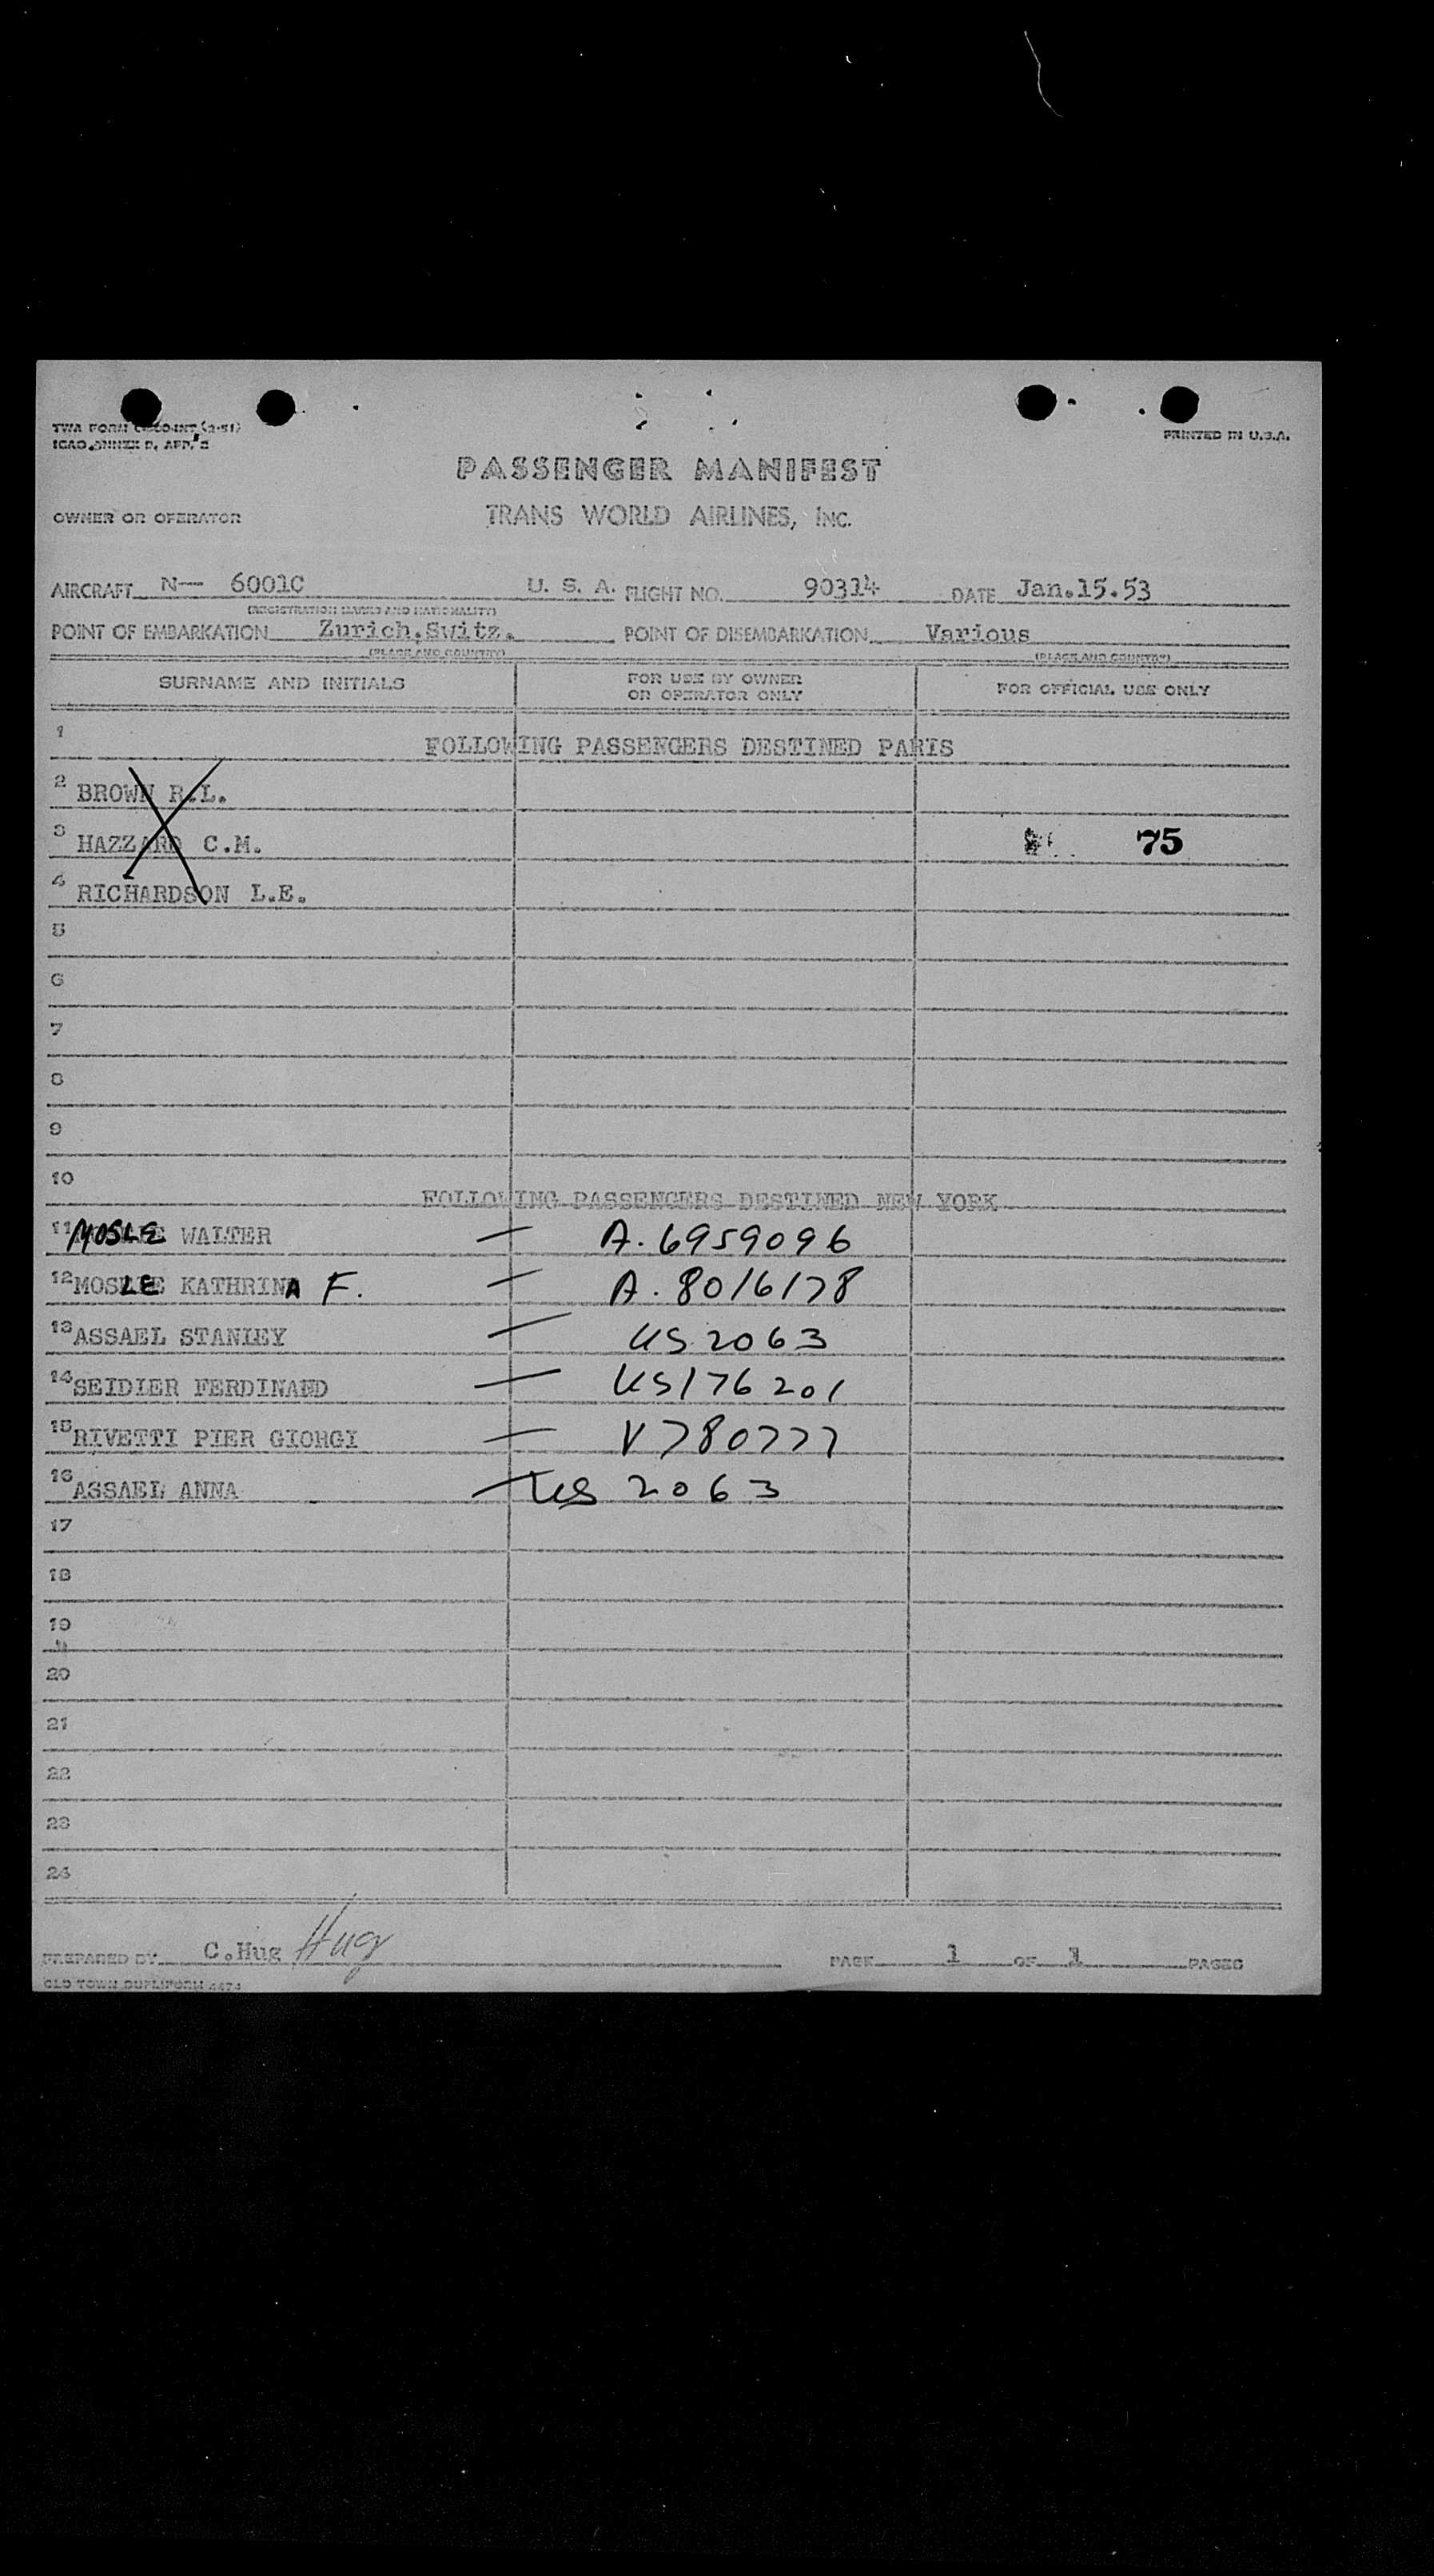 TWA FORM (2-51)
ICAO ANNEX 9, APP. 2
PRINTED IN U.S.A.
PASSENGER MANIFEST
OWNER OR OPERATOR TRANS WORLD AIRLINES, INC.
AIRCRAFT N— 6001C U. S. A. FLIGHT NO. 90314 DATE Jan.15.53
(REGISTRATION MARKS AND NATIONALITY)
POINT OF EMBARKATION Zurich,Switz. POINT OF DISEMBARKATION Various
(PLACE AND COUNTRY) (PLACE AND COUNTRY)
SURNAME AND INITIALS FOR USE BY OWNER OR OPERATOR ONLY FOR OFFICIAL USE ONLY
1 FOLLOWING PASSENGERS DESTINED PARIS
2 BROWN R.L.
3 HAZZARD C.M. 75
4 RICHARDSON L.E.
5
6
7
8
9
10 FOLLOWING PASSENGERS DESTINED NEW YORK
11 MOSLE WALTER — A. 6959096
12 MOSLE KATHRINA F. — A. 8016178
13 ASSAEL STANLEY — US 2063
14 SEIDIER FERDINAND — US176201
15 RIVETTI PIER GIORGI — V780777
16 ASSAEL ANNA — US 2063
17
18
19
20
21
22
23
24
PREPARED BY C.Hug Hug PAGE 1 OF 1 PAGES
OLD TOWN DUPLIFORM 4474